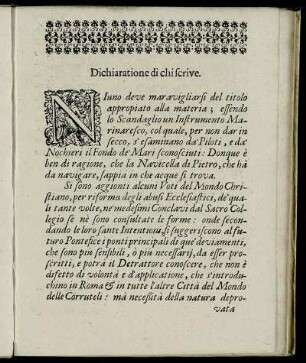 Dichiaratione di chi scrive.
Niuno deve maravigliarsi del titolo
appropiato alla materia; essendo
lo Scandaglio un Instrumento Ma-
rinaresco, col quale, per non dar in
secco, s'esaminano da' Piloti, e da'
Nochieri il Fondo de' Mari sconosciuti: Donque è
ben di ragione, che la Navicella di Pietro, che hà
da navigare, sappia in che acque si trova.
Si sono aggionti alcuni Voti del Mondo Chri-
stiano, per riforma degli abusi Ecclesiastici, de' qua-
li tante volte, ne' medesimi Conclavi dal Sacro Col-
legio se nè sono consultate le forme: onde secon-
dando le loro sante Intentioni, si suggeriscono al fu-
turo Pontefice i ponti principali di que' deviamenti,
che sono più sensibili, ò più necessarij, da esser pro-
scritti, e potrà il Detrattore conoscere, che non è
difetto di volontà e d'applicatione, che s'introdu-
chino in Roma & in tutte l'altre Città del Mondo
delle Corrutele: mà necessità della natura depra-
vata